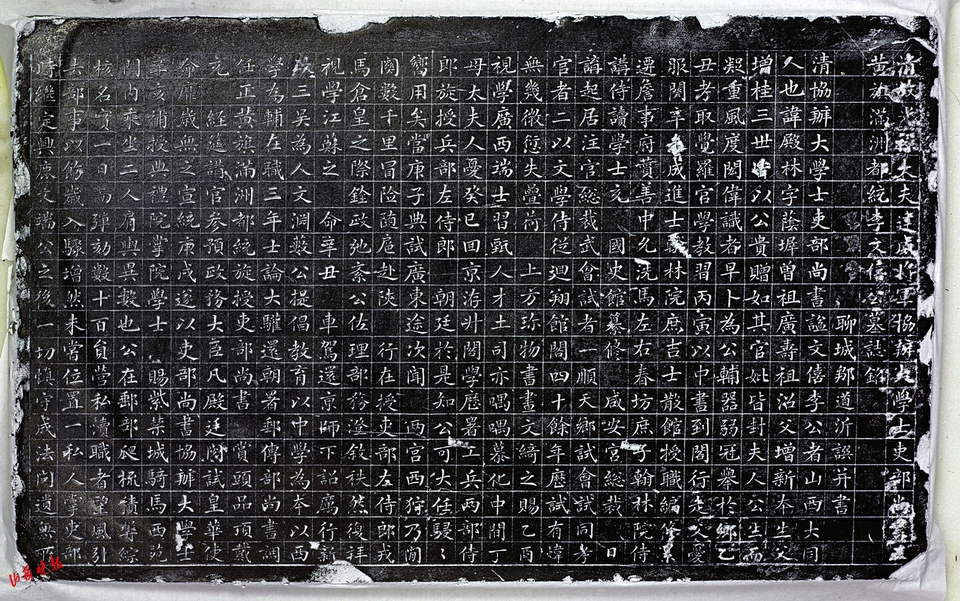 清故光祿大夫建威將軍協辦大學士吏部尚書
黃旗滿洲都統李文僖公墓誌銘
聊城鄒道沂譔并書
清協辦大學士吏部尚書謚文僖李公者山西大同
人也諱殿林字蔭墀曾祖廣壽祖沼父增新本生父
增桂三世皆以公貴贈如其官妣皆封夫人公生而
凝重風度閎偉識者早卜為公輔器弱冠舉於鄉乙
丑考取覺羅官學教習丙寅以中書到閣行走父憂
服闋辛未成進士翰林院庶吉士散館授職編修
遷詹事府贊善中允洗馬左右春坊庶子翰林院侍
講侍讀學士充 國史館纂修咸安宮總裁日
講起居注官總裁武會試者一順天鄉試會試同考
官者二以文學侍從迴翔館閣四十餘年歷試有聞
無幾微愆失疊荷 上方珍物書畫文綺之賜乙酉
視學廣西瑞士習甄人才土司亦喁喁慕化中間丁
母太夫人憂癸巳回京洊升閣學歷署工兵兩部侍
郎旋授兵部左侍郎 朝廷於是知公可大任駸駸
嚮用矣當庚子典試廣東途次聞 兩宮西狩乃間
關數千里冒險隨扈赴陝 行在授吏部左侍郎戎
馬倉皇之際銓政弛紊公佐理部務澄敘秩然復拜
視學江蘇之 命辛丑 車駕還京師下詔厲行新
政三吳為人文淵藪公提倡教育以中學為本以西
學為輔在職三年士論大驩還朝署郵傳部尚書調
任正黃旗滿洲都統旋授吏部尚書 賞頭品頂戴
充 經筵講官參預政務大臣凡殿廷閱試皇華使
命靡歲無之宣統庚戌遂以吏部尚書協辦大學士
辛亥補授典禮院掌院學士 賜紫禁城騎馬西苑
門內乘坐二人肩輿異數也公在郵部爬梳積弊綜
核名實一日而彈劾數十百員營私瀆職者望風引
去郵事以修歲入驟增然未嘗位置一私人掌吏部
時繼定興鹿文端公之後一切慎守成法問遺無所